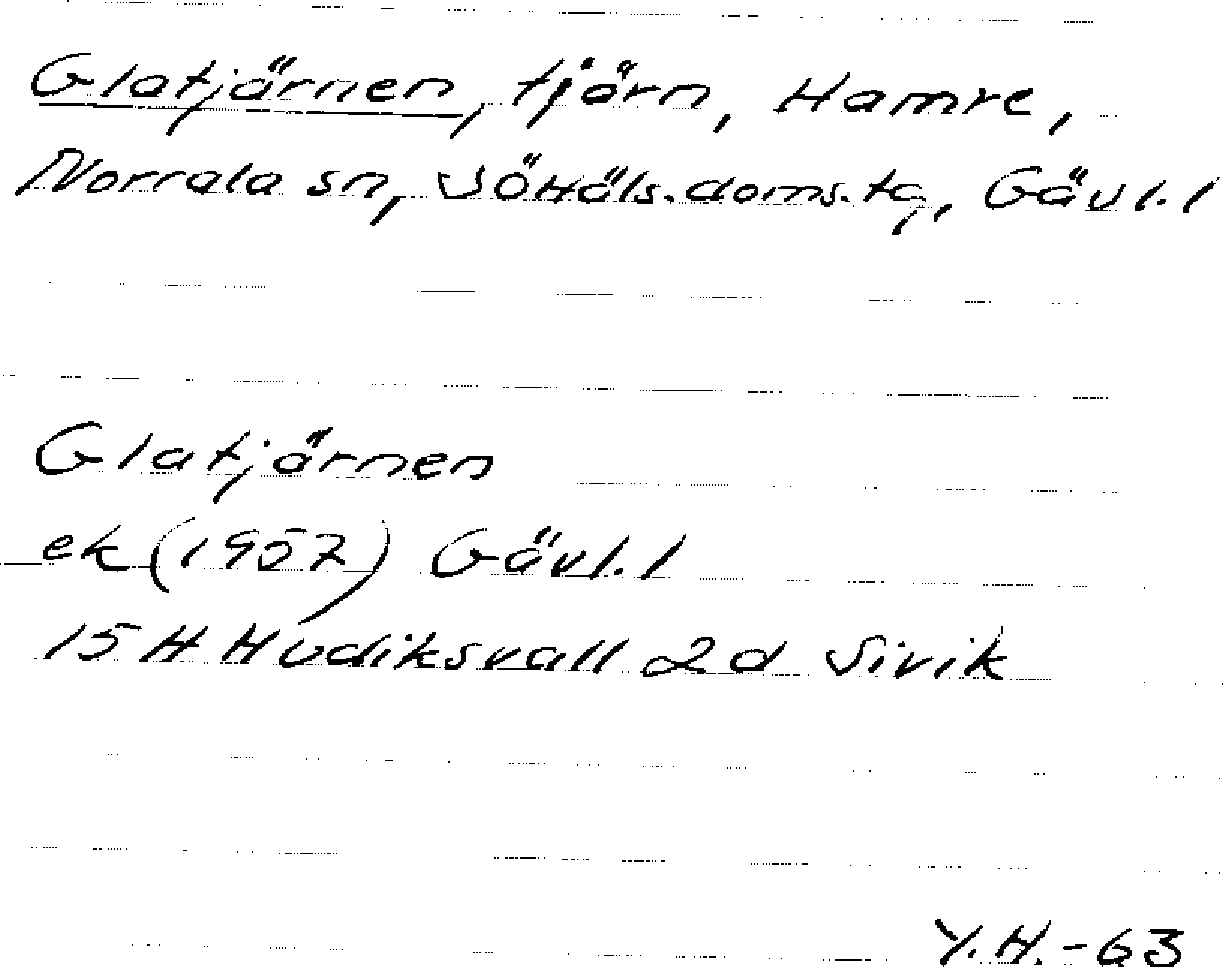 Glatjärnen, tjärn, Hamre,
Norrala sn, SöHäls.doms.tg, Gävl.l
Glatjärnen
ek (1957) Gävl.l
15 H Hudiksvall 2 d Sivik
Y.H.-63